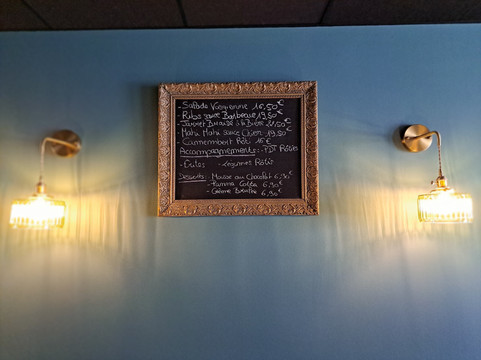 - Salade Vosgienne 16.50€
- Ribs sauce Barbecue 19.50€
- Jarret Braisé à la Bière 21.50€
- Mahi Mahi sauce 19.50€
- Camembert Rôti 16€
Accompagnements: - PDT Rôties
- Frites - Légumes Rôtis
Desserts: Mousse au Chocolat 6,90€
- Panna Cotta 6,90€
- Crème Brulée 6,90€